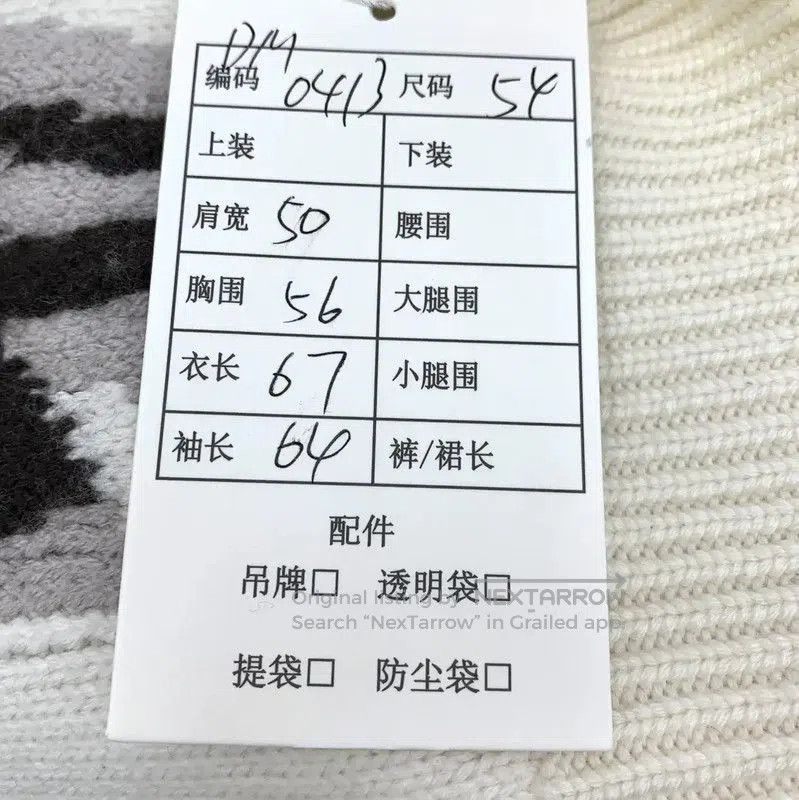 DM
编码 0413 尺码 54
上装 下装
肩宽 50 腰围
胸围 56 大腿围
衣长 67 小腿围
袖长 64 裤/裙长
配件
吊牌□ 透明袋□
Original listing by NEXTARROW
Search “NexTarrow” in Grailed app.
提袋□ 防尘袋□